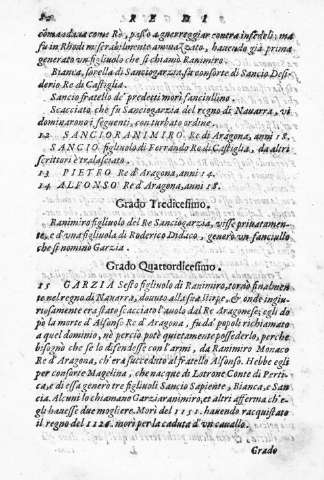 R E D I
comandava come Re, passò a guerreggiar contra infedeli; ma
fu in Rhodi miserabilmente ammazzato, hauendo già prima
generato vn figliuolo che si chiamò Ranimiro.
Bianca, sorella di Sanciogarzia, fu consorte di Sancio Desi-
derio Re di Castiglia.
Sancio fratello de' predetti morì fanciullino.
Scacciato che fù Sanciogarzia del regno di Nauarra, vi
dominarono i seguenti, con turbato ordine.
12 SANCIORANIMIRO. Re di Aragona, anni 18.
SANCIO figliuolo di Ferrando Re di Castiglia, da altri
scrittori è tralasciato.
13 PIETRO Re d'Aragona, anni 14.
14 ALFONSO Re d'Aragona, anni 18.
Grado Tredicesimo.
Ranimiro figliuolo del Re Sanciogarzia, visse priuatamen-
te, e d'vna figliuola di Ruderico Didaco, generò vn fanciullo
che si nominò Garzia.
Grado Quattordicesimo.
15 GARZIA Sesto figliuolo di Ranimiro, tornò finalmen-
te nel regno di Nauarra, douuto alla sua stirpe, & onde ingiu-
riosamente era stato scacciato l'auolo dal Re Aragonese; egli do
pò la morte d'Alfonso Re d'Aragona, fù da' popoli richiamato
a quel dominio, nè perciò potè quietamente possederlo, perche
bisognò che se lo difendesse con l'armi, da Ranimiro Monaco
Re d'Aragona, ch'era succeduto al fratello Alfonso. Hebbe egli
per consorte Magelina, che nacque di Lotrone Conte di Perti-
ca, e di essa generò tre figliuoli Sancio Sapiente, Bianca, e San
cia. Alcuni lo chiamano Garziaranimiro, et altri afferma ch'e-
gli hauesse due mogliere. Morì del 1151. hauendo racquistato
il regno del 1126. morì per la caduta d'vn cauallo.
Grado